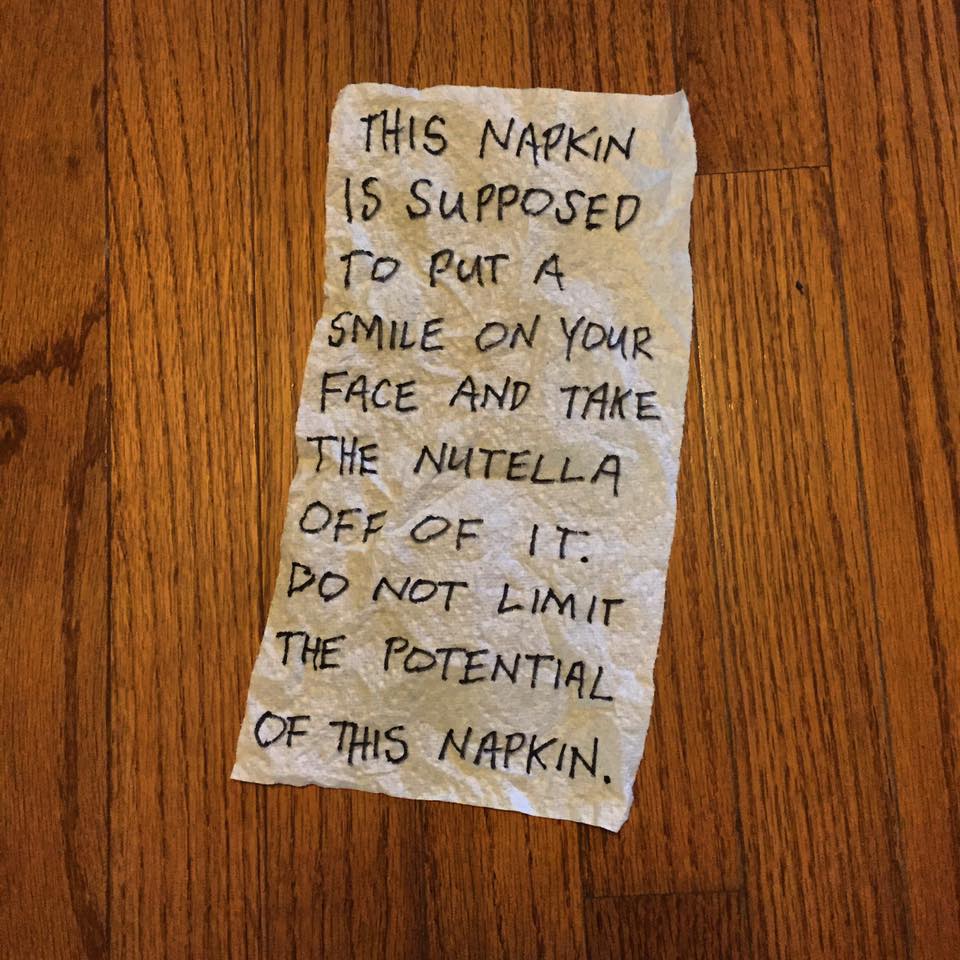 THIS NAPKIN
IS SUPPOSED
TO PUT A
SMILE ON YOUR
FACE AND TAKE
THE NUTELLA
OFF OF IT.
DO NOT LIMIT
THE POTENTIAL
OF THIS NAPKIN.